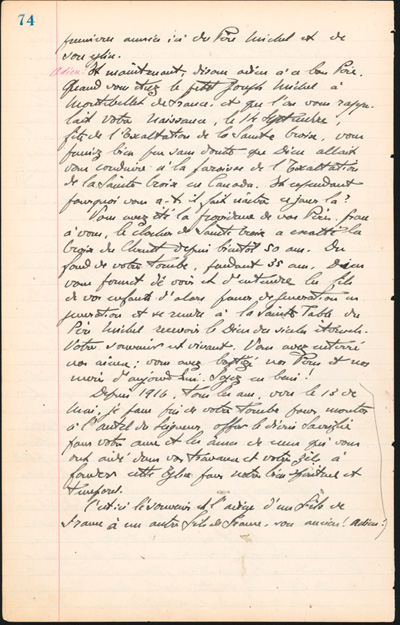 74
premières années ici du Père Michel et de
son église.
Adieu. Et maintenant, disons adieu à ce bon Père.
Quand vous étiez le petit Joseph Michel à
Montbellet de France, et que l'on vous rappe-
lait votre naissance, le 14 septembre,
fête de l'Exaltation de la Sainte Croix, vous
pensiez bien peu sans doute que Dieu allait
vous conduire à la paroisse de l'Exaltation
de la Sainte Croix en Canada. Et cependant
pourquoi vous a-t-il fait naître ce jour là?
Vous avez été la Providence de nos Pères, grâce
à vous, le clocher de Sainte Croix a exalté la
Croix du Christ depuis bientôt 50 ans. Du
fond de votre tombe, pendant 35 ans, Dieu
vous permet de voir et d'entendre les fils
de vos enfants d'alors passer de génération en
génération et se rendre à la Sainte Table du
Père Michel recevoir le Dieu des siècles éternels.
Votre souvenir est vivant. Vous avez enterré
nos aïeux; vous avez baptisé nos Pères et nos
mères d'aujourd'hui. Soyez en béni!
Depuis 1916, tous les ans, vers le 15 de
Mai, je passe près de votre tombe pour monter
à l'autel du Seigneur, offrir le divin sacrifice
pour votre âme et les âmes de ceux qui vous
ont aidé dans vos travaux et votre zèle à
fonder cette église pour notre bien spirituel et
temporel.
C'est ici le souvenir et l'adieu d'un fils de
France à un autre fils de France, son ancien! Adieu!